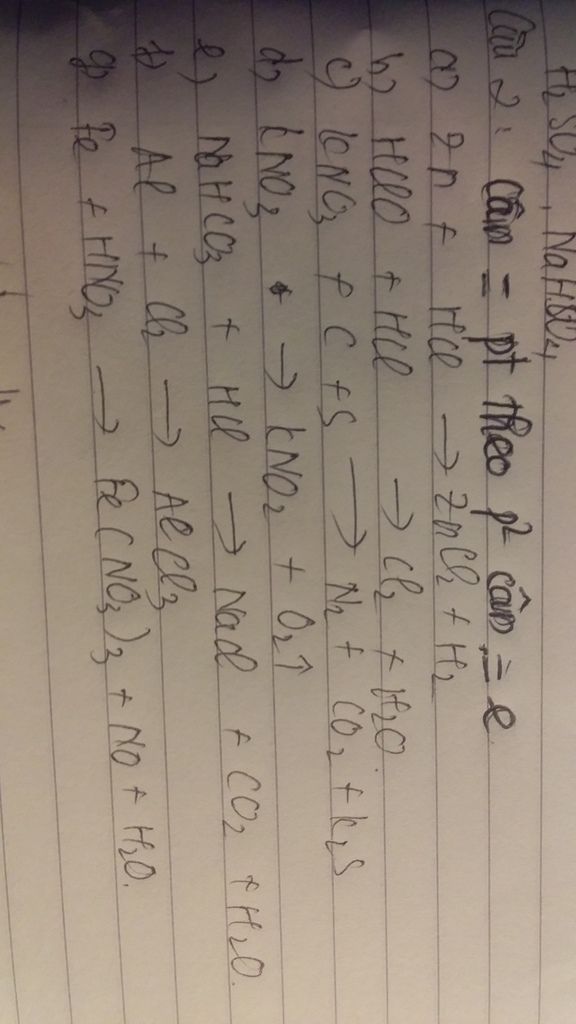 H₂SO₄, NaHSO₄
Câu 2: Cân = pt theo p² cân = e
a) Zn + HCl → ZnCl₂ + H₂
b) HClO + HCl → Cl₂ + H₂O.
c) KNO₃ + C + S → N₂ + CO₂ + K₂S
d) KNO₃ → KNO₂ + O₂↑
e) NaHCO₃ + HCl → NaCl + CO₂ + H₂O.
f) Al + Cl₂ → AlCl₃
g) Fe + HNO₃ → Fe(NO₃)₃ + NO + H₂O.